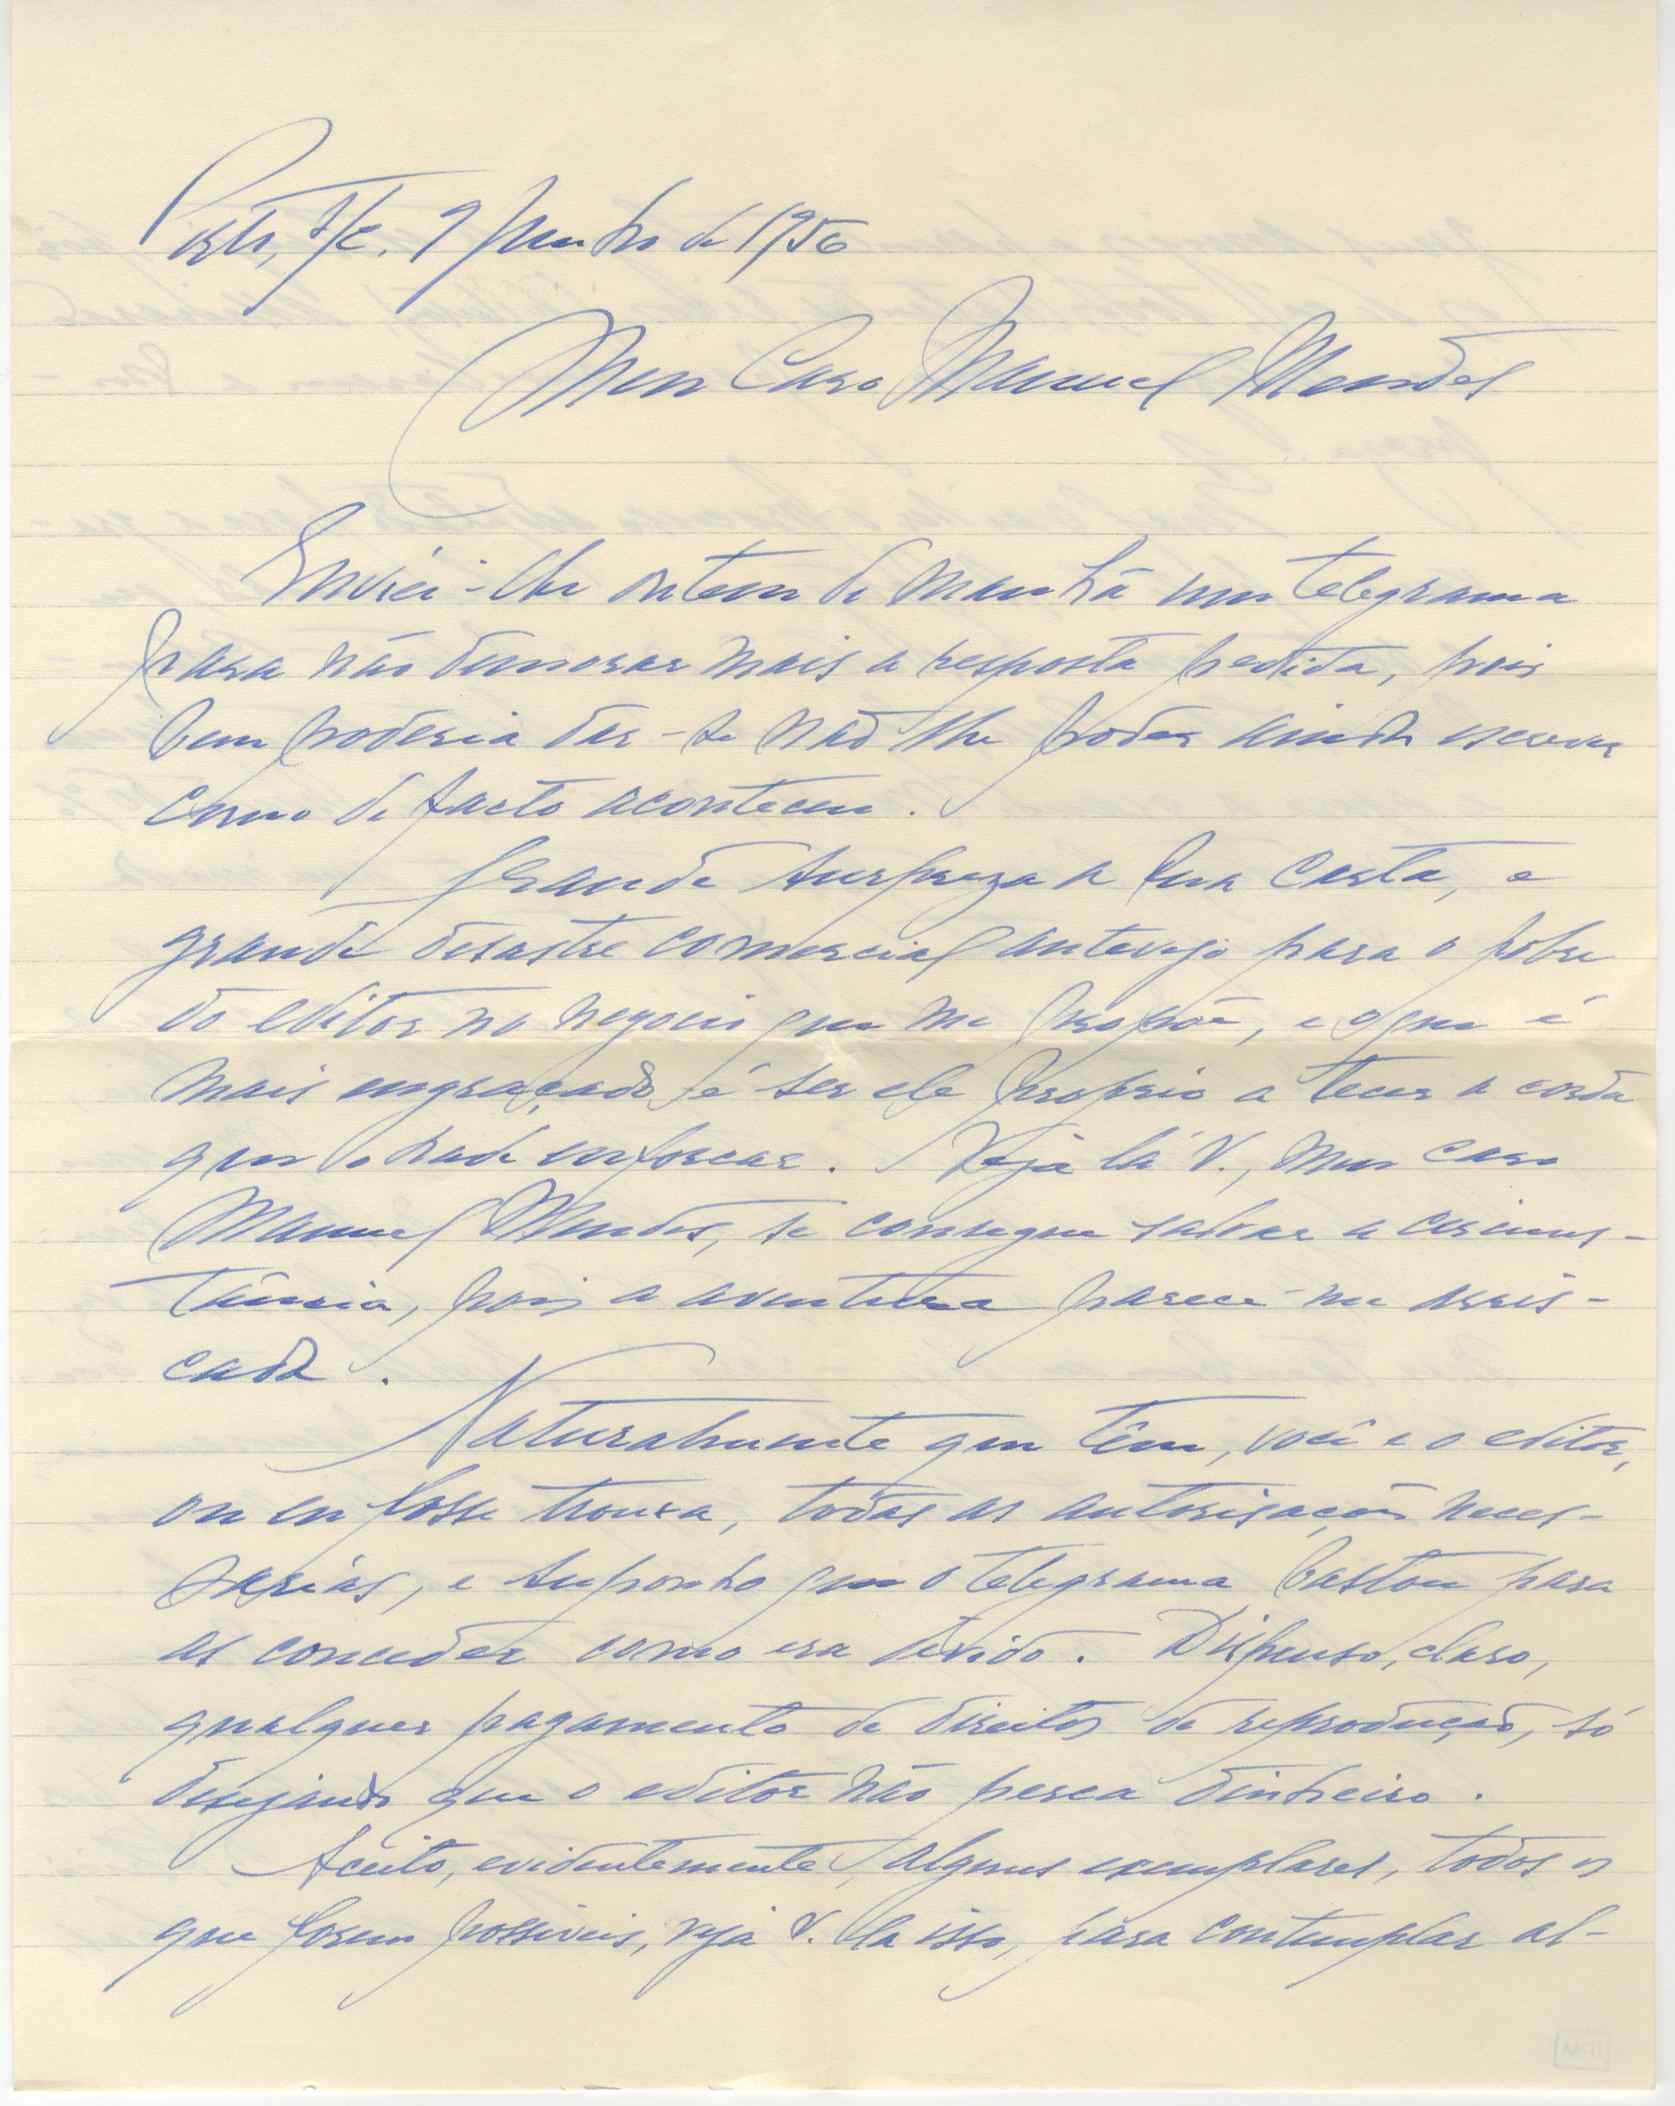 Porto, s/c. 9 Junho de 1956
Meu Caro Manuel Mendes
Enviei-lhe ontem de manhã um telegrama
para não demorar mais a resposta pedida, pois
bem poderia dar-se não lhe poder ainda escrever
como de facto aconteceu.
Grande surpreza a sua carta, e
grande desastre comercial antevejo para o pobre
do editor no negocio que me propõe, e o que é
mais engraçado é ser ele proprio a tecer a corda
que o hade enforcar. Veja lá V., meu caro
Manuel Mendes, se consegue salvar a circuns-
tância, pois a aventura parece-me arris-
cada.
Naturalmente que têm, você e o editor,
ou eu fosse trouxa, todas as autorisações neces-
sarias, e suponho que o telegrama bastou para
as conceder como era devido. Dispenso, claro,
qualquer pagamento de direitos de reprodução, só
desejando que o editor não perca dinheiro.
Aceito, evidentemente, alguns exemplares, todos os
que forem possiveis, veja V. lá isso, para contemplar al-